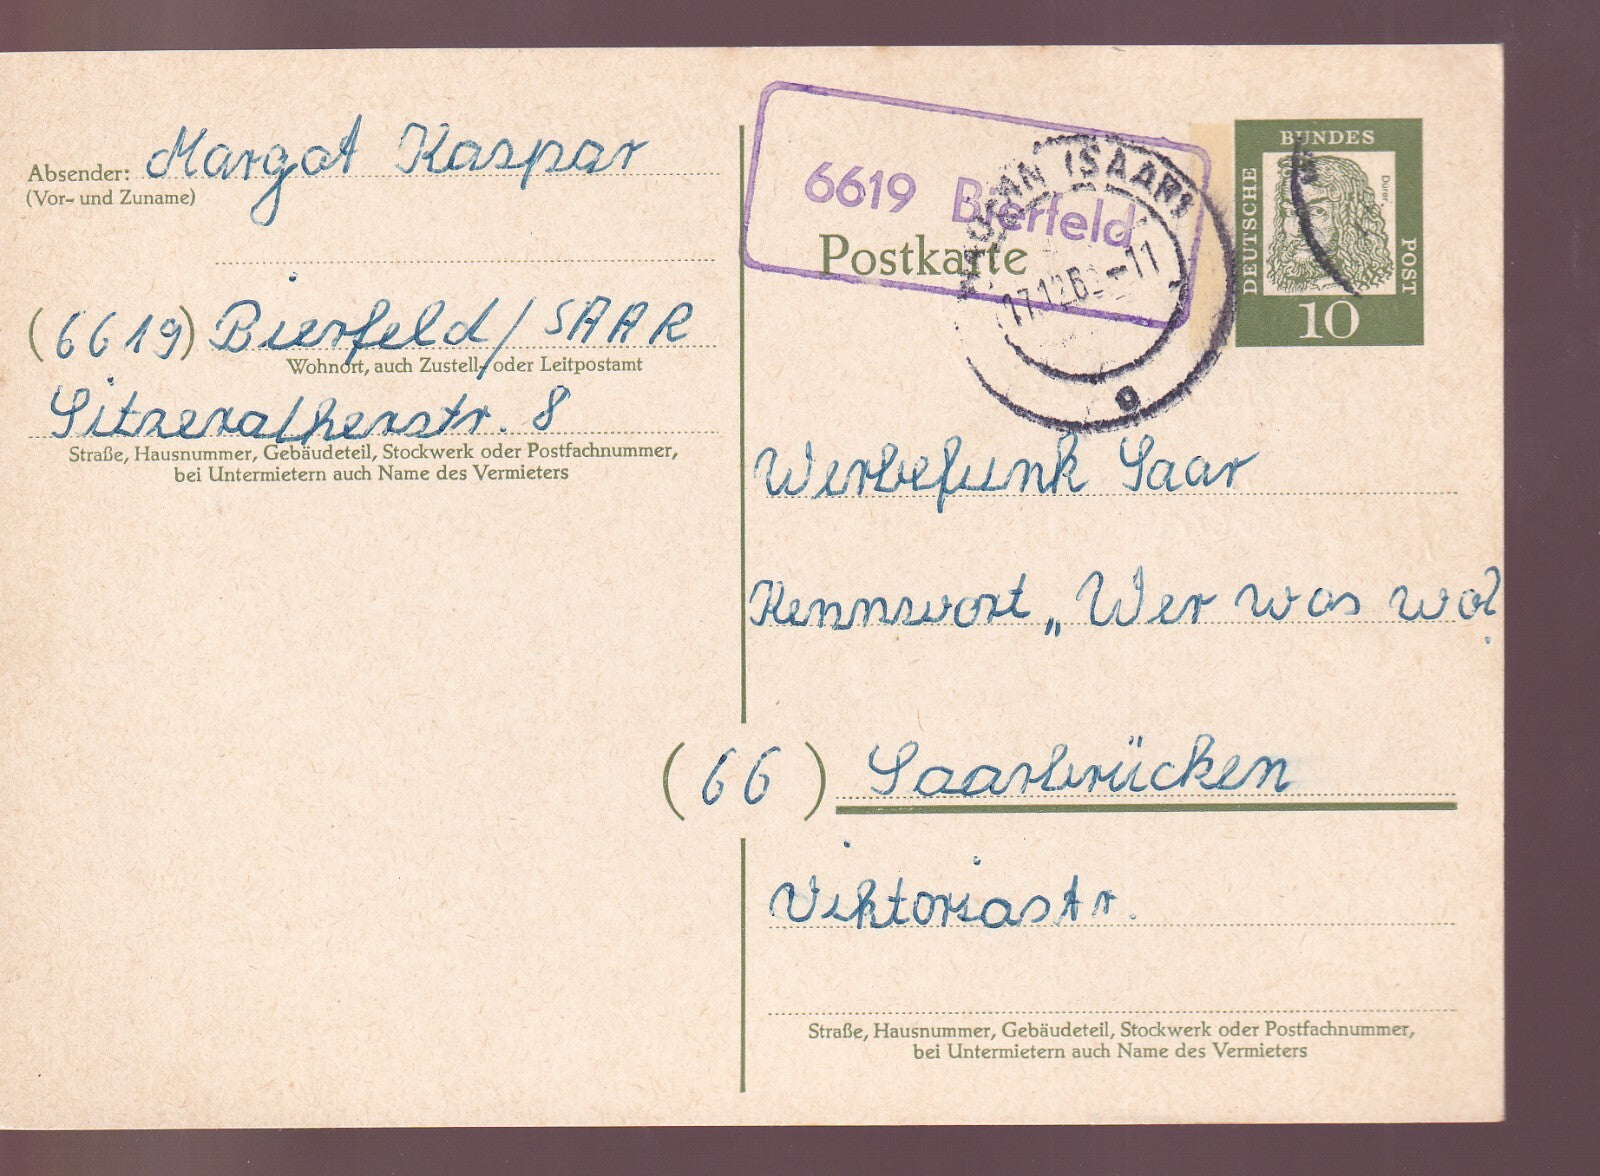 Absender: Margot Kaspar
(Vor- und Zuname)
(6619) Bierfeld/SAAR
Wohnort, auch Zustell- oder Leitpostamt
Sitzeratherstr. 8
Straße, Hausnummer, Gebäudeteil, Stockwerk oder Postfachnummer,
bei Untermietern auch Name des Vermieters
6619 Bierfeld
Postkarte
(SAAR)
17.12.6 -11
g
DEUTSCHE BUNDES POST
Dürer
10
Werbefunk Saar
Kennwort „Wer was wo?
(66) Saarbrücken
Viktoriastr.
Straße, Hausnummer, Gebäudeteil, Stockwerk oder Postfachnummer,
bei Untermietern auch Name des Vermieters